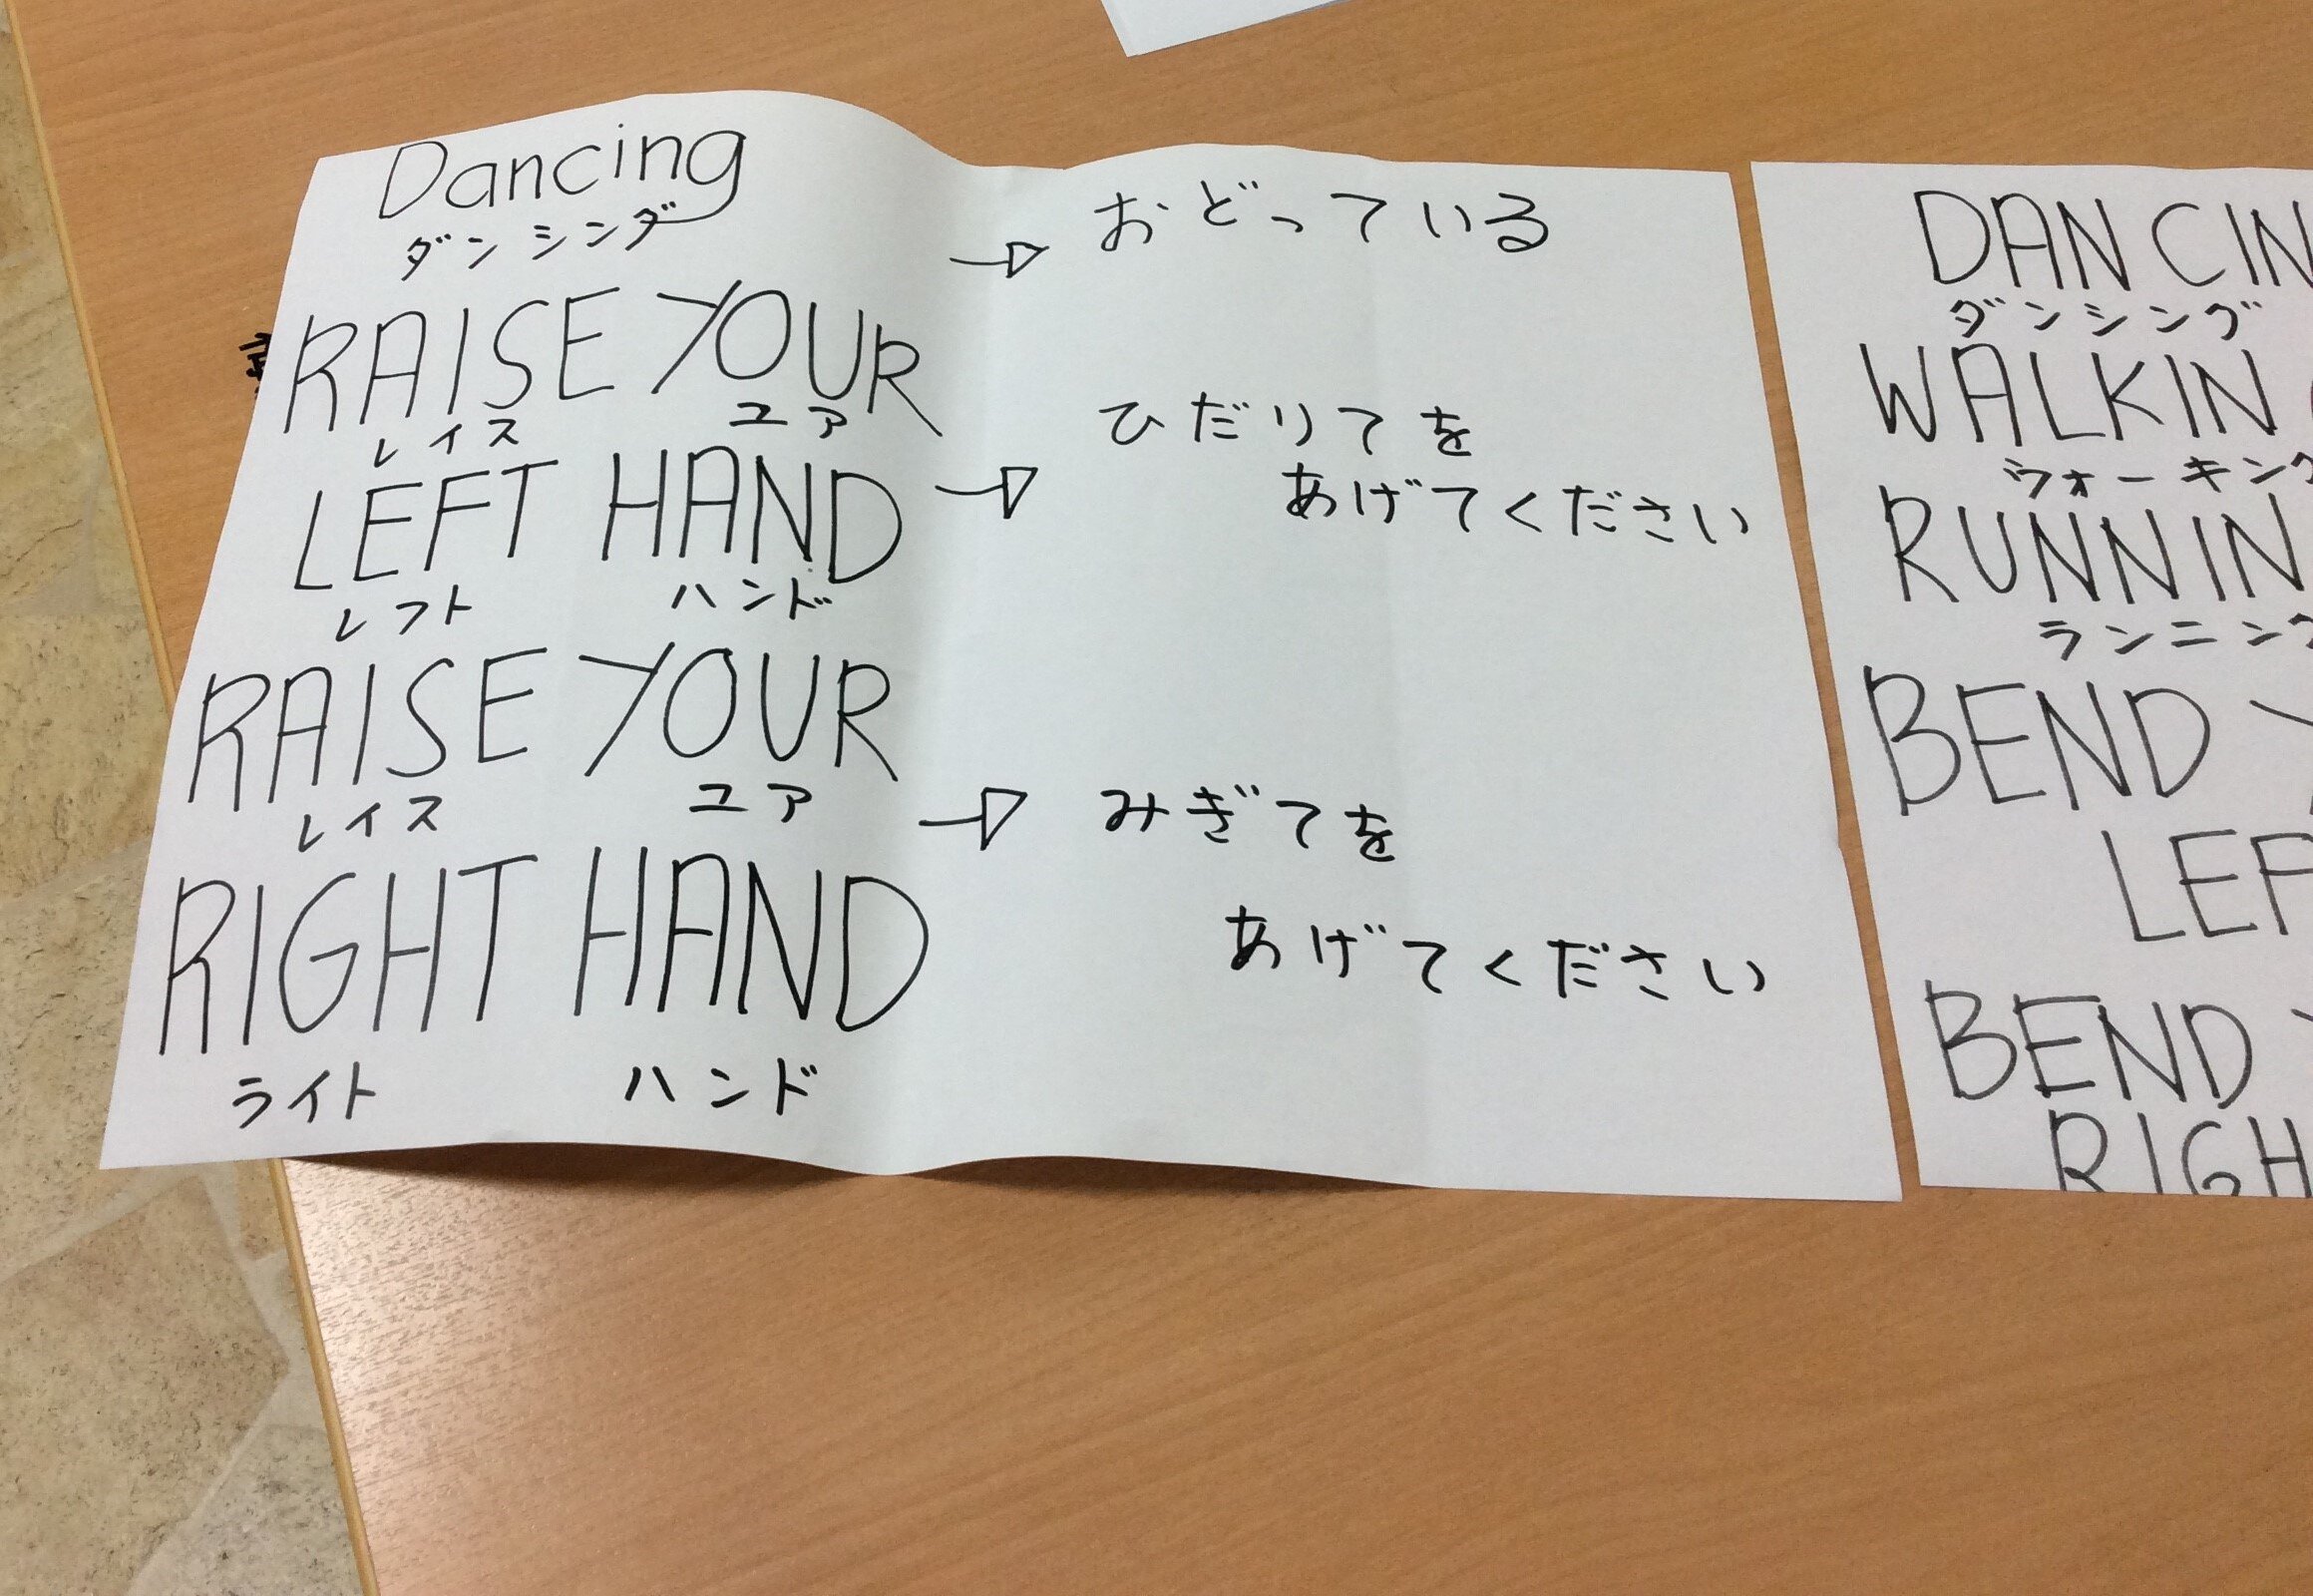 Dancing
ダンシング
→ おどっている
RAISE YOUR
レイス ユア
LEFT HAND
レフト ハンド
→ ひだりてを
あげてください
RAISE YOUR
レイス ユア
RIGHT HAND
ライト ハンド
→ みぎてを
あげてください
DANCIN
ダンシング
WALKIN
ウォーキング
RUNNIN
ランニング
BEND
LEF
BEND
RIGH